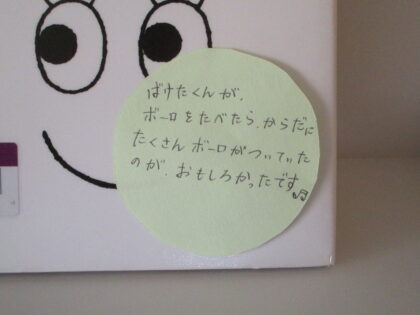 ばけたくんが、
ボーロをたべたら、からだに
たくさんボーロがついていた
のが、おもしろかったです♫